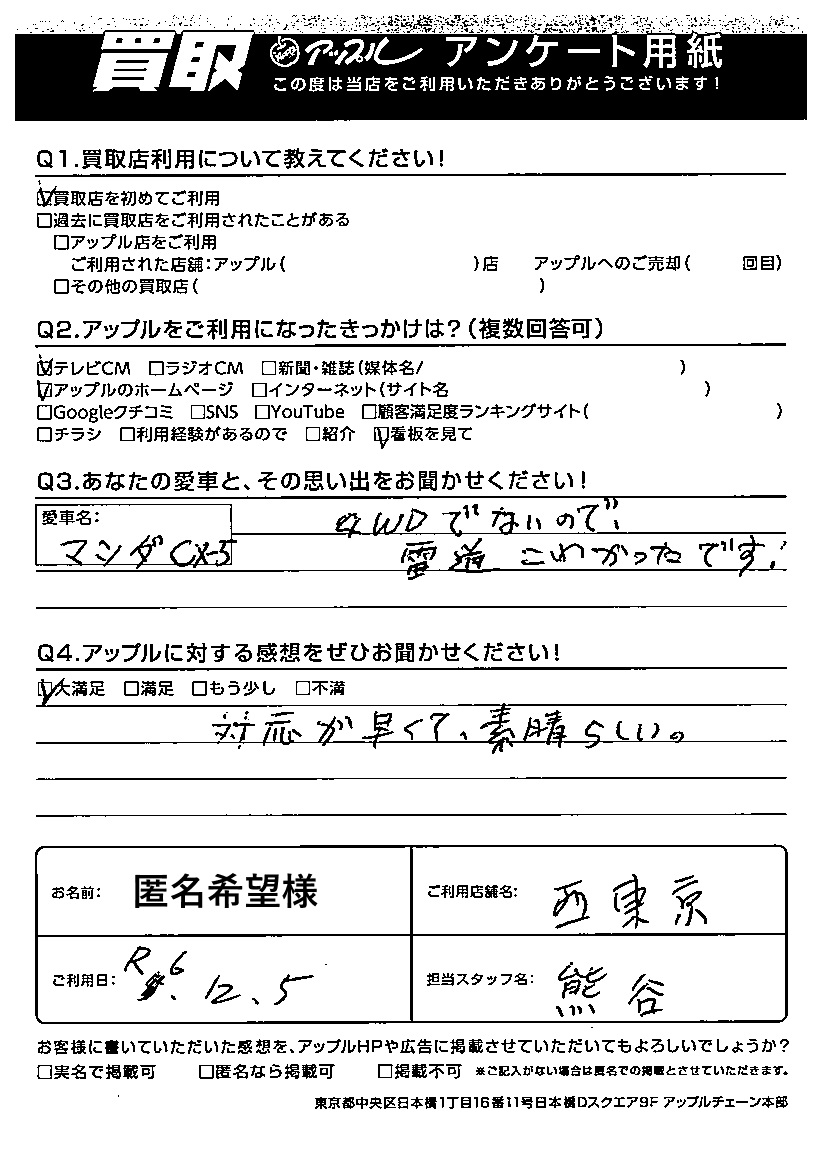 買取 アップル アンケート用紙
この度は当店をご利用いただきありがとうございます!
Q1.買取店利用について教えてください!
☑買取店を初めてご利用
□過去に買取店をご利用されたことがある
□アップル店をご利用
ご利用された店舗:アップル( )店 アップルへのご売却( 回目)
□その他の買取店( )
Q2.アップルをご利用になったきっかけは?(複数回答可)
☑テレビCM □ラジオCM □新聞・雑誌(媒体名/ )
☑アップルのホームページ □インターネット(サイト名 )
□Googleクチコミ □SNS □YouTube □顧客満足度ランキングサイト( )
□チラシ □利用経験があるので □紹介 ☑看板を見て
Q3.あなたの愛車と、その思い出をお聞かせください!
愛車名:
マツダ CX-5
4WDでないので、
雪道こわかったです!
Q4.アップルに対する感想をぜひお聞かせください!
☑大満足 □満足 □もう少し □不満
対応が早くて、素晴らしい。
お名前: 匿名希望様 ご利用店舗名: 西東京
ご利用日: R6.12.5 担当スタッフ名: 熊谷
お客様に書いていただいた感想を、アップルHPや広告に掲載させていただいてもよろしいでしょうか?
□実名で掲載可 □匿名なら掲載可 □掲載不可 ※ご記入がない場合は匿名での掲載とさせていただきます。
東京都中央区日本橋1丁目16番11号日本橋Dスクエア9F アップルチェーン本部